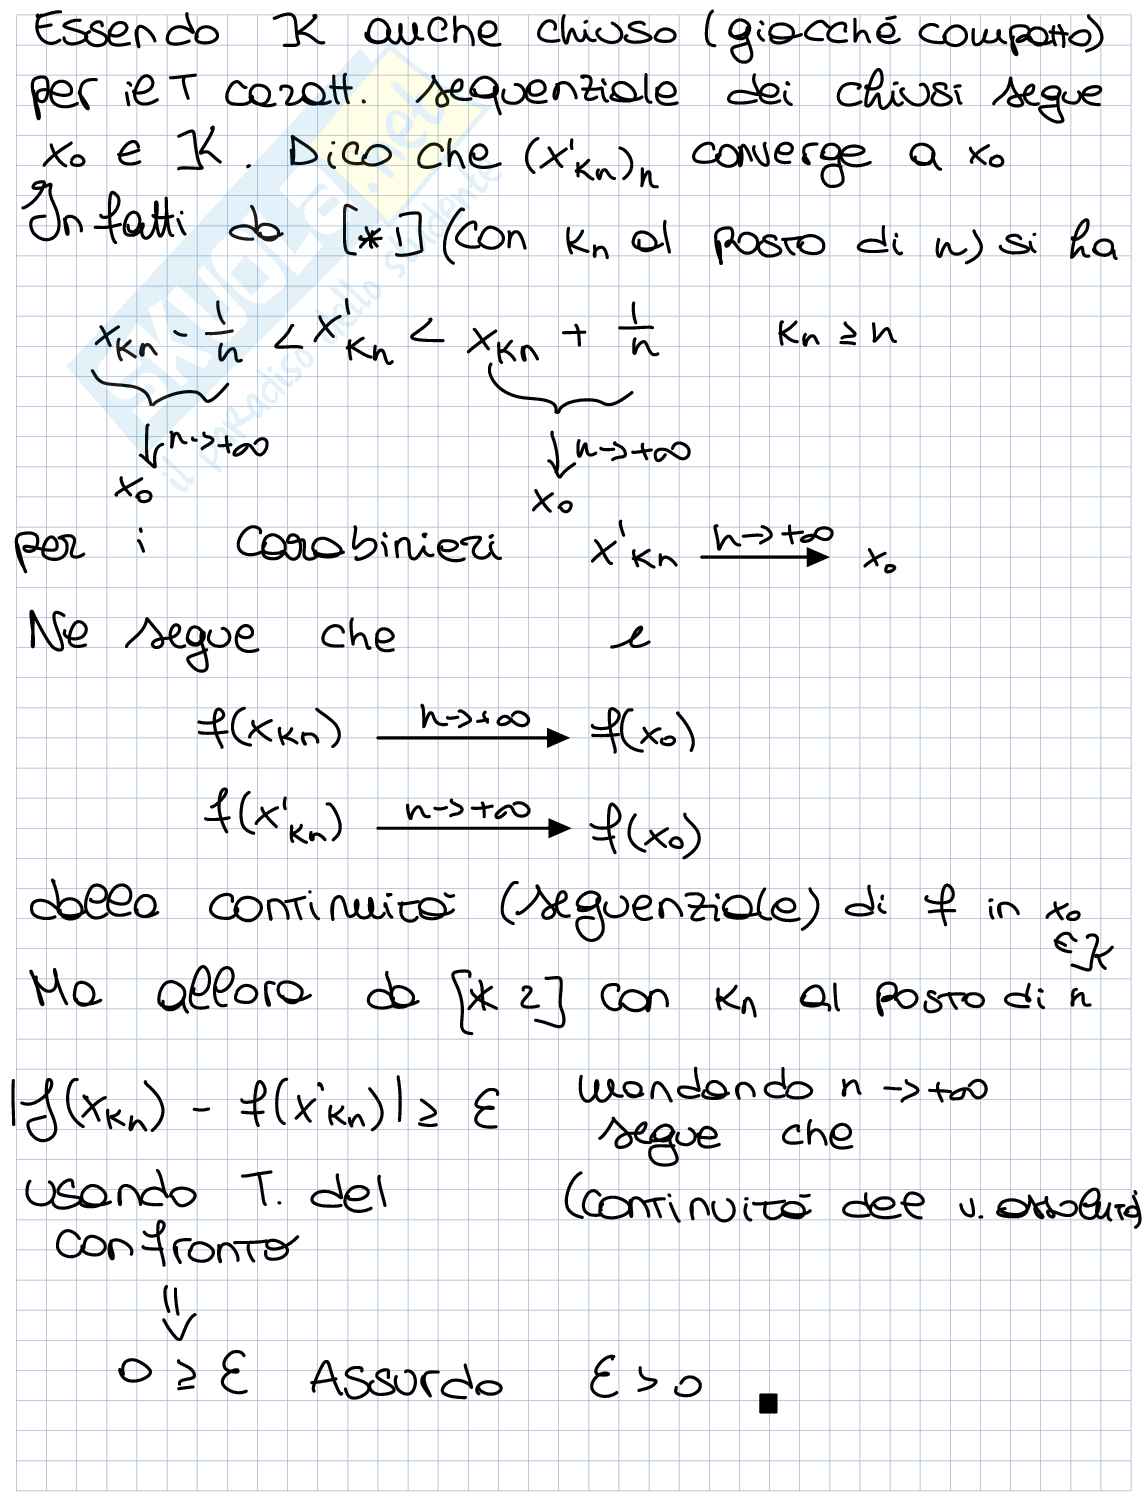 Essendo K anche chiuso (giacché compatto)
per il T caratt. sequenziale dei chiusi segue
x₀ ∈ K. Dico che (x'ₖₙ)ₙ converge a x₀
Infatti da [*1] (con kₙ al posto di n) si ha
xₖₙ - 1/n < x'ₖₙ < xₖₙ + 1/n    kₙ ≥ n
↓ n→+∞    ↓ n→+∞
x₀    x₀
per i carabinieri x'ₖₙ n→+∞ → x₀
Ne segue che e
f(xₖₙ) n→+∞ → f(x₀)
f(x'ₖₙ) n→+∞ → f(x₀)
dalla continuità (sequenziale) di f in x₀
∈ K
Ma allora da [*2] con kₙ al posto di n
|f(xₖₙ) - f(x'ₖₙ)| ≥ ε    mandando n→+∞
segue che
usando T. del    (continuità del v. assoluto)
confronto
⇓
0 ≥ ε Assurdo ε > 0 ■
SKUOLA.net
il paradiso dello studente